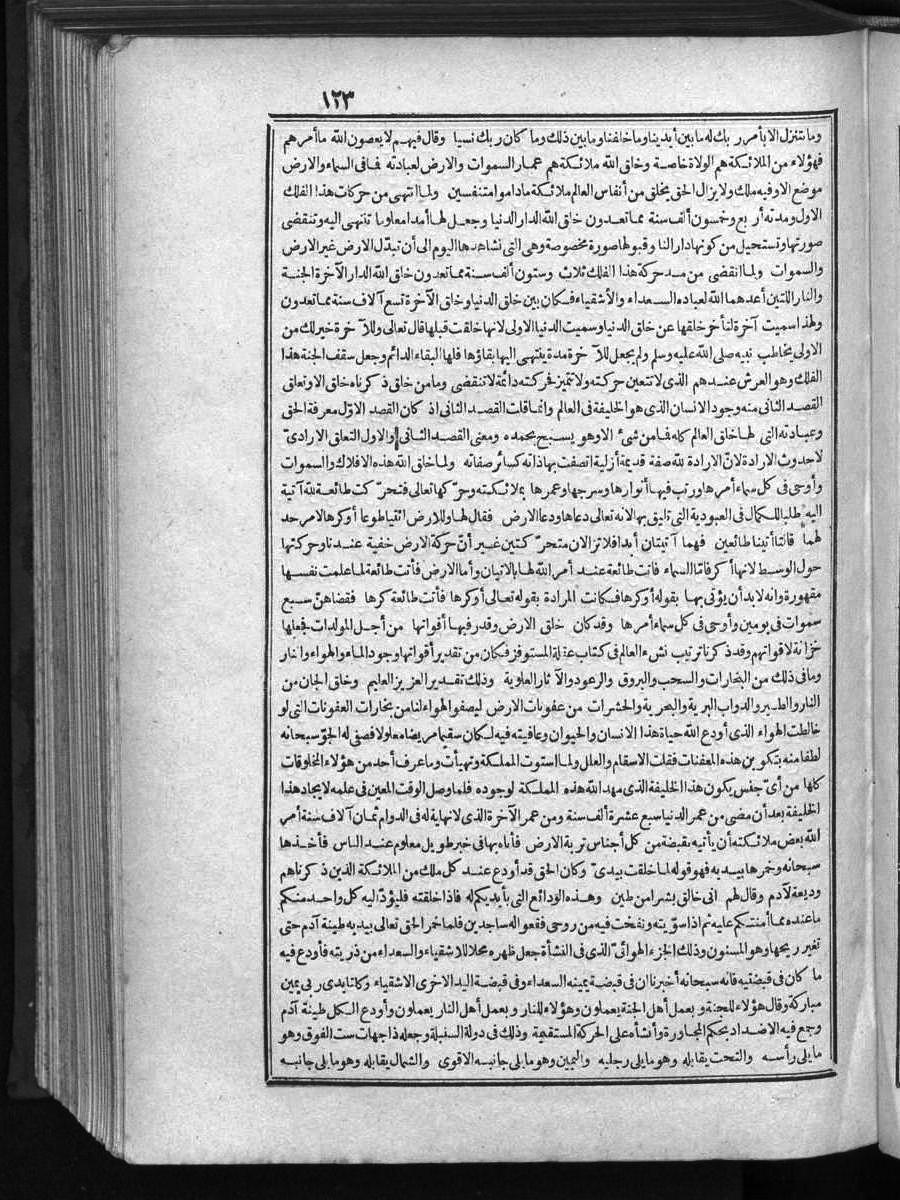 ١٢٣
وما نتنزل الا بأمر ربك له ما بين أيدينا وما خلفنا وما بين ذلك وما كان ربك نسيا وقال فيهم لا يعصون الله ما أمرهم
فهؤلاء من الملائكة هم الولاة خاصة وخلق الله ملائكة هم عمار السموات والارض لعبادته فما فى السماء والارض
موضع الا وفيه ملك ولا يزال الحق يخلق من أنفاس العالم ملائكة ماداموا متنفسين ولما انتهى من حركات هذا الفلك
الاول ومدته أربع وخمسون ألف سنة مما تعدون خلق الله الدار الدنيا وجعل لها أمدا معلوما تنتهى اليه وتنقضى
صورتها وتستحيل من كونها دار النا وقبولها صورة مخصوصة وهى التى نشاهدها اليوم الى أن تبدّل الارض غير الارض
والسموات ولما انقضى من مدة حركة هذا الفلك ثلاث وستون ألف سنة مما تعدون خلق الله الدار الآخرة الجنة
والنار اللتين أعدهما الله لعباده السعداء والأشقياء فكان بين خلق الدنيا وخلق الآخرة تسع آلاف سنة مما تعدون
ولهذا سميت آخرة لتأخر خلقها عن خلق الدنيا وسميت الدنيا الاولى لانها خلقت قبلها قال تعالى وللآخرة خير لك من
الاولى يخاطب نبيه صلى الله عليه وسلم ولم يجعل للآخرة مدة ينتهى اليها بقاؤها فلها البقاء الدائم وجعل سقف الجنة هذا
الفلك وهو العرش عندهم الذى لا تتعين حركته ولا تتميز فحركته دائمة لا تنقضى وما من خلق ذكرناه خلق الا وتعلق
القصد الثانى منه وجود الانسان الذى هو الخليفة فى العالم وانما قلت القصد الثانى اذ كان القصد الاوّل معرفة الحق
وعبادته التى لها خلق العالم كله فما من شئ الا وهو يسبح بحمده ومعنى القصد الثانى والاول التعلق الارادىّ
لا حدوث الارادة لانّ الارادة لله صفة قديمة أزلية اتصفت بها ذاته كسائر صفاته ولما خلق الله هذه الافلاك والسموات
وأوحى فى كل سماء أمرها ورتب فيها أنوارها وسرجها وعمرها بملائكته وحرّكها تعالى فتحرّكت طائعة لله آتية
اليه طلبا للكمال فى العبودية التى تليق بها لانه تعالى دعاها ودعا الارض فقال لها وللارض ائتيا طوعا أو كرها لامر حد
لهما قالتا أتينا طائعين فهما آتيتان أبدا فلا تزالان متحرّكتين غير أنّ حركة الارض خفية عندنا وحركتها
حول الوسط لانها أكر فاما السماء فاتت طائعة عند أمر الله لها بالاتيان وأما الارض فأتت طائعة لما علمت نفسها
مقهورة وانه لابد أن يؤتى بها بقوله أو كرها فكانت المرادة بقوله تعالى أو كرها فأتت طائعة كرها فقضاهنّ سبع
سموات فى يومين وأوحى فى كل سماء أمرها وقد كان خلق الارض وقدر فيها أقواتها من أجل المولدات فجعلها
خزانة لاقواتهم وقد ذكرنا ترتيب نشء العالم فى كتاب عقلة المستوفز فكان من تقدير أقواتها وجود الماء والهواء والنار
وما فى ذلك من البخارات والسحب والبروق والرعود والآثار العلوية وذلك تقدير العزيز العليم وخلق الجان من
النار والطير والدواب البرية والبحرية والحشرات من عفونات الارض ليصفو الهواء لنا من بخارات العفونات التى لو
خالطت الهواء الذى أودع الله حياة هذا الانسان والحيوان وعافيته فيه لكان سقيما مريضا معلولا فصفى له الجوّ سبحانه
لطفا منه بتكوين هذه المعفنات فقلت الاسقام والعلل ولما استوت المملكة وتهيأت وما عرف أحد من هؤلاء المخلوقات
كلها من أىّ جنس يكون هذا الخليفة الذى مهد الله هذه المملكة لوجوده فلما وصل الوقت المعين فى علمه لايجاد هذا
الخليفة بعد أن مضى من عمر الدنيا سبع عشرة ألف سنة ومن عمر الآخرة الذى لا نهاية له فى الدوام ثمان آلاف سنة أمر
الله بعض ملائكته أن يأتيه بقبضة من كل أجناس تربة الارض فأتاه بها فى خبر طويل معلوم عند الناس فأخذها
سبحانه وخمرها بيديه فهو قوله لما خلقت بيدىّ وكان الحق قد أودع عند كل ملك من الملائكة الذين ذكرناهم
وديعة لآدم وقال لهم انى خالق بشرا من طين وهذه الودائع التى بأيديكم له فاذا خلقته فليؤدّ اليه كل واحد منكم
ما عنده مما أمنتكم عليه ثم اذا سوّيته ونفخت فيه من روحى فقعوا له ساجدين فلما خمر الحق تعالى بيديه طينة آدم حتى
تغير ريحها وهو المسنون وذلك الجزء الهوائىّ الذى فى النشأة جعل ظهره محلا للاشقياء والسعداء من ذريته فأودع فيه
ما كان فى قبضتيه فانه سبحانه أخبرنا ان فى قبضة يمينه السعداء وفى قبضة اليد الاخرى الاشقياء وكلتا يدى ربى يمين
مباركة وقال هؤلاء للجنة وبعمل أهل الجنة يعملون وهؤلاء للنار وبعمل أهل النار يعملون وأودع الكل طينة آدم
وجمع فيه الاضداد بحكم المجاورة وأنشأه على الحركة المستقيمة وذلك فى دولة السنبلة وجعله ذا جهات ست الفوق وهو
ما يلى رأسه والتحت يقابله وهو ما يلى رجليه واليمين وهو ما يلى جانبه الاقوى والشمال يقابله وهو ما يلى جانبه